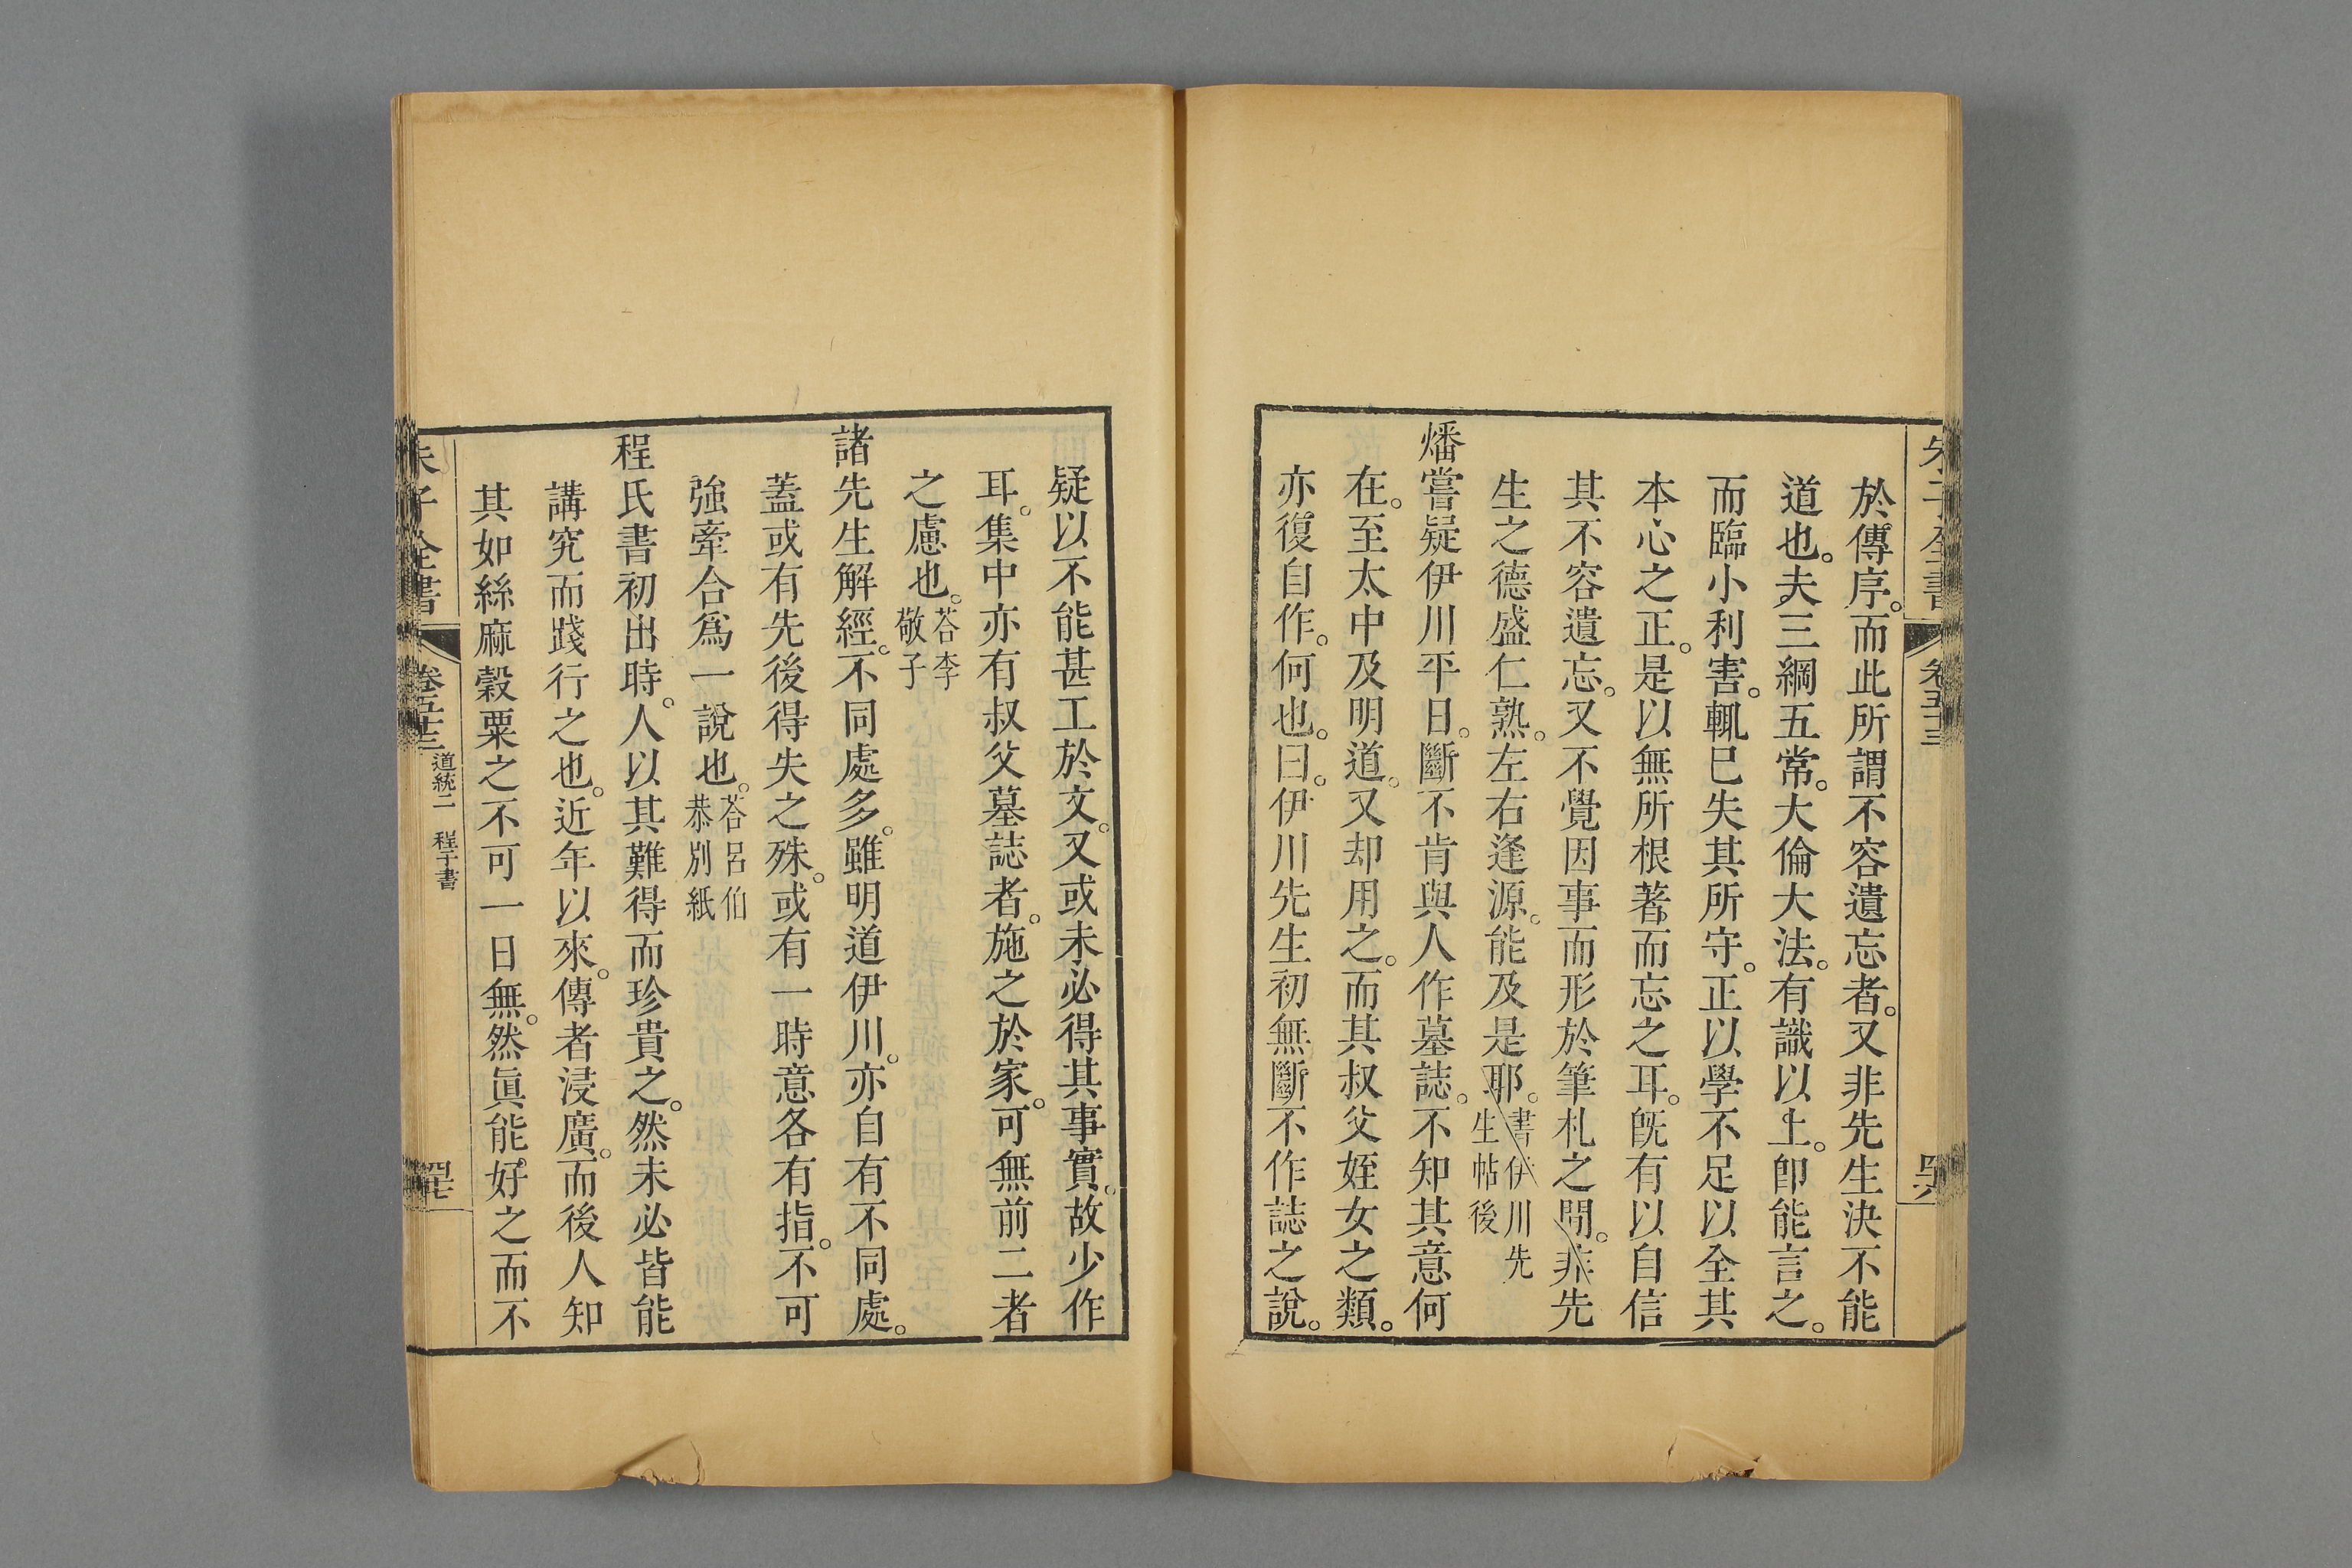 朱子全書 卷五十三
於傳序。而此所謂不容遺忘者。又非先生決不能
道也。夫三綱五常。大倫大法。有識以上。卽能言之。
而臨小利害。輒已失其所守。正以學不足以全其
本心之正。是以無所根著。而忘之耳。旣有以自信
其不容遺忘。又不覺因事而形於筆札之間。非先
生之德盛仁熟。左右逢源。能及是耶。書伊川先生帖後
燔嘗疑伊川平日。斷不肯與人作墓誌。不知其意何
在。至太中及明道。又却用之。而其叔父姪女之類。
亦復自作。何也。曰。伊川先生初無斷不作誌之說。
疑以不能甚工於文。又或未必得其事實。故少作
耳。集中亦有叔父墓誌者。施之於家。可無前二者
之慮也。荅李敬子
諸先生解經。不同處多。雖明道伊川。亦自有不同處。
蓋或有先後得失之殊。或有一時意各有指。不可
強牽合爲一說也。荅呂伯恭別紙
程氏書初出時。人以其難得而珍貴之。然未必皆能
講究而踐行之也。近年以來。傳者浸廣。而後人知
其如絲麻穀粟之不可一日無。然眞能好之而不
朱子全書 卷五十三 道統二 程子書 四七